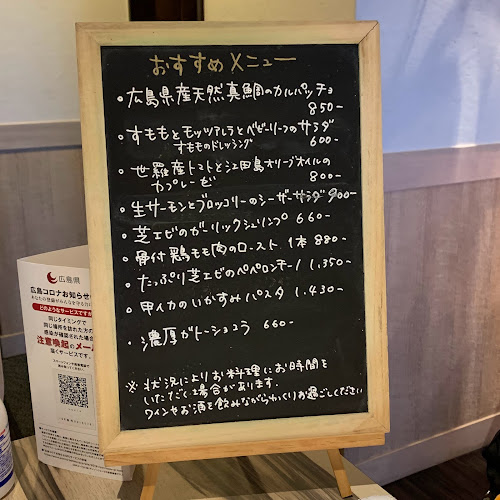 おすすめメニュー
・広島県産天然真鯛のカルパッチョ
850-
・すももとモッツアレラとベビーリーフのサラダ
すもものドレッシング 600-
・世羅産トマトと江田島オリーブオイルの
カプレーゼ 800-
・生サーモンとブロッコリーのシーザーサラダ 900-
・芝エビのガーリックシュリンプ 660-
・骨付鶏モモ肉のロースト 1本 880-
・たっぷり芝エビのペペロンチーノ 1,350-
・甲イカのいかすみパスタ 1,430-
・濃厚ガトーショコラ 660-
※状況によりお料理にお時間を
いただく場合があります。
ワインやお酒を飲みながらゆっくりお過ごしください
広島県
広島コロナお知らせ
どのようなサービスですか
同じタイミングで
同じ場所を訪れた方の
感染が確認された場合
注意喚起のメー
届くサービスです。